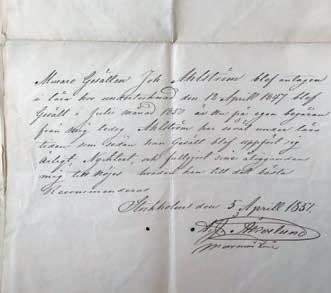 Murare Gesällen Joh Ahlström blef antagen
i lära hos undertecknad den 12 Aprill 1847 blef
Gesäll i Julii månad 1850 är nu på egen begäran
från mig ledig Ahlström har såväl under läro
tiden som sedan han Gesäll blef uppfört sig
ärligt, Nyktert, och fullgjort sine åligganden
mig till Nöjes hvarföre han till det bästa
Recommenderas
Stockholm den 5 Aprill 1851.